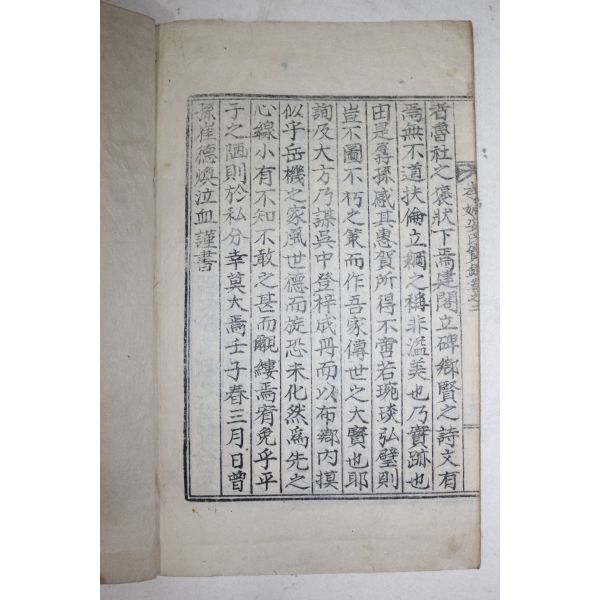 者魯社之褒狀下焉建閣立碑鄉賢之詩文有
焉無不道扶倫立綱之稱非溢美也乃實跡也
由是孱孫感其惠賀所得不啻若琬琰弘璧則
豈不圖不朽之策而作吾家傳世之大寶也耶
詢及大方乃謀吳中登梓成冊而以布鄉內摸
似乎岳機之家風世德而旋恐未化然爲先之
心線小有不知不敢之甚而覼縷焉宥免乎平
子之陋則於私分幸莫大焉壬子春三月日曾
孫崔德煥泣血謹書